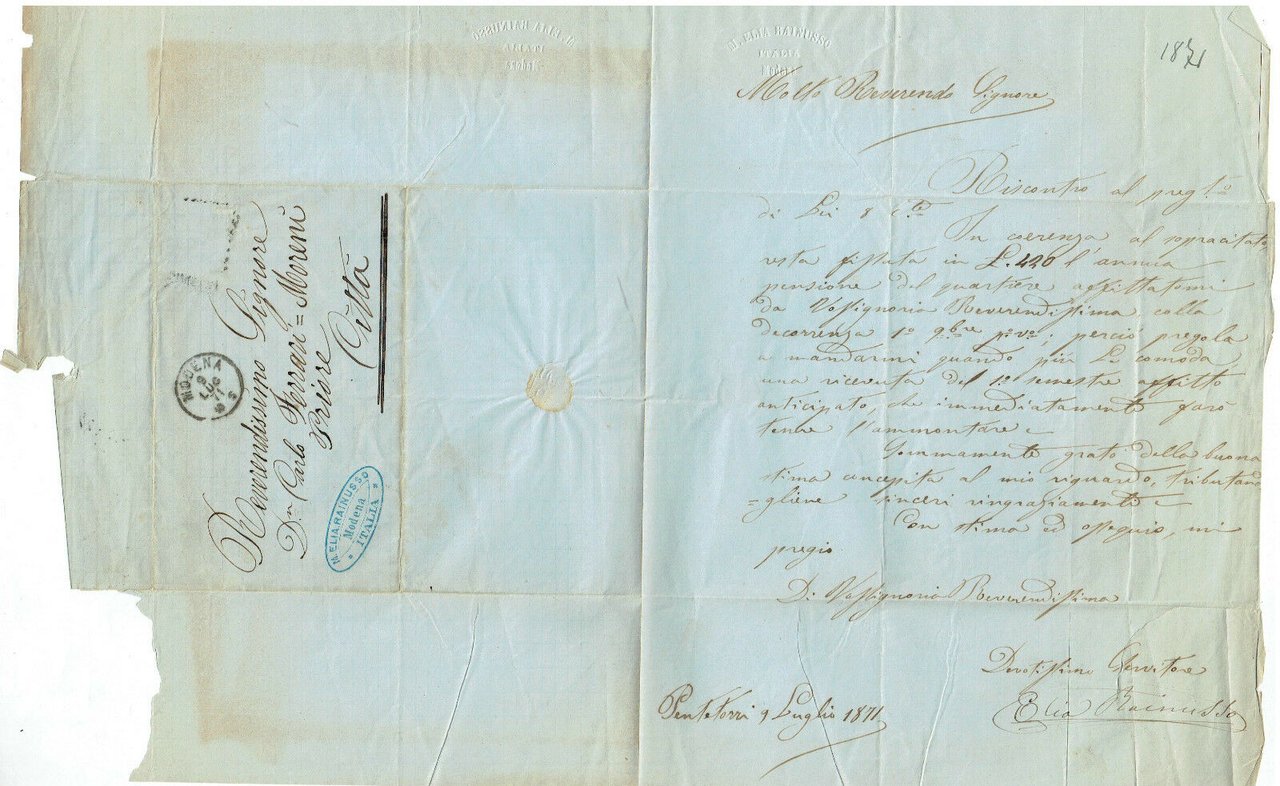 M. ELIA RAINUSSO
ITALIA
Modena
1871
Molto Reverendo Signore
Riscontro al preg.to
di Lei 8 c.te
In coerenza al sopracitato,
resta fissata in L. 420 l'annua
pensione del quartiere affittatomi
da Vossignoria Reverendissima colla
decorrenza 1º 9bre p.º v.º, perciò pregola
a mandarmi quando più Le comoda
una ricevuta del 1º semestre affitto
anticipato, che immediatamente farò
tenere l'ammontare
Sommamente grato della buona
stima concepita al mio riguardo, tributando
=gliene sinceri ringraziamenti
Con stima ed ossequio, mi
pregio
Di Vossignoria Reverendissima
Devotissimo Servitore
Elia Rainusso
9 Luglio 1871
Reverendissimo Signore
D.n Carlo Ferrari = Moreni
Priore
Città
MODENA
9
LUG
71
M. ELIA RAINUSSO
Modena
ITALIA